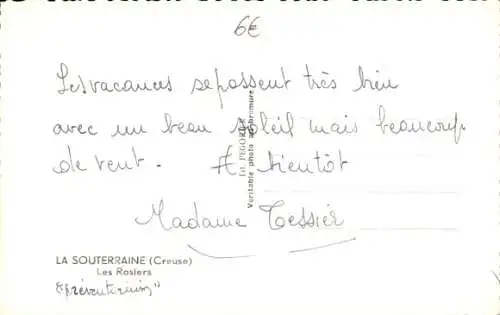 6€
Les vacances se passent très bien
avec un beau soleil mais beaucoup
de vent. A bientôt
Madame Tessier
Véritable photo au bromure
LA SOUTERRAINE (Creuse)
Les Rosiers
"Préventorium"